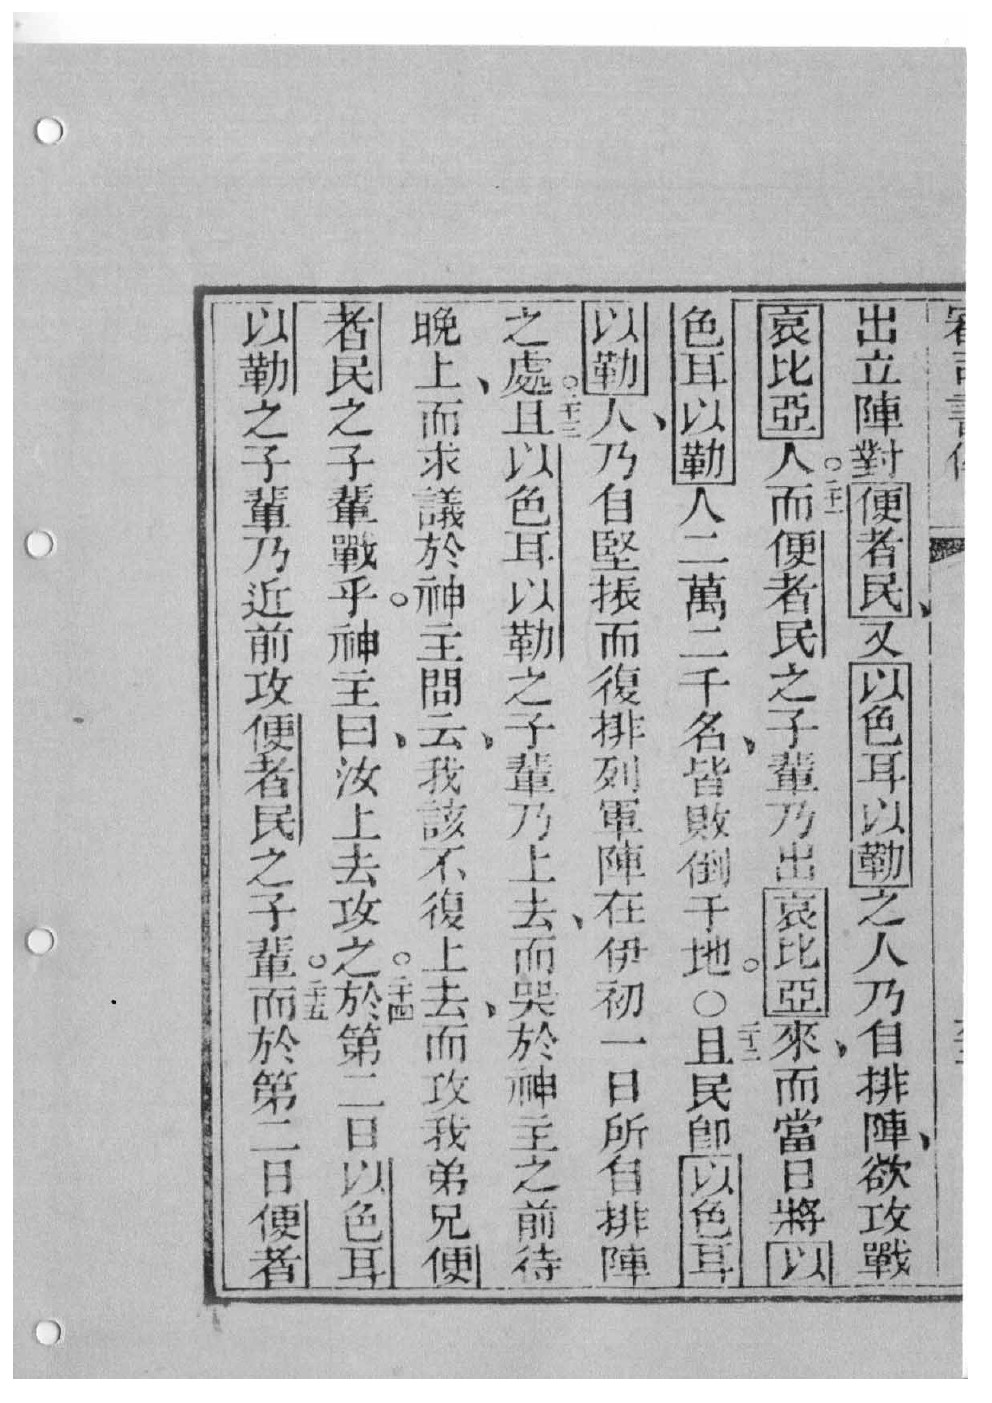 出立陣對便者民、又以色耳以勒之人乃自排陣、欲攻戰
哀比亞人。二十一而便者民之子輩乃出哀比亞來、而當日將以
色耳以勒人二萬二千名、皆敗倒于地。○二十二且民卽以色耳
以勒人、乃自堅振而復排列軍陣在伊初一日所自排陣
之處。二十三且以色耳以勒之子輩乃上去、而哭於神主之前待
晚上、而求議於神主問云、我該不復上去、而攻我弟兄便
者民之子輩戰乎。神主曰、汝上去攻之。二十四於第二日以色耳
以勒之子輩乃近前攻便者民之子輩。二十五而於第二日便者